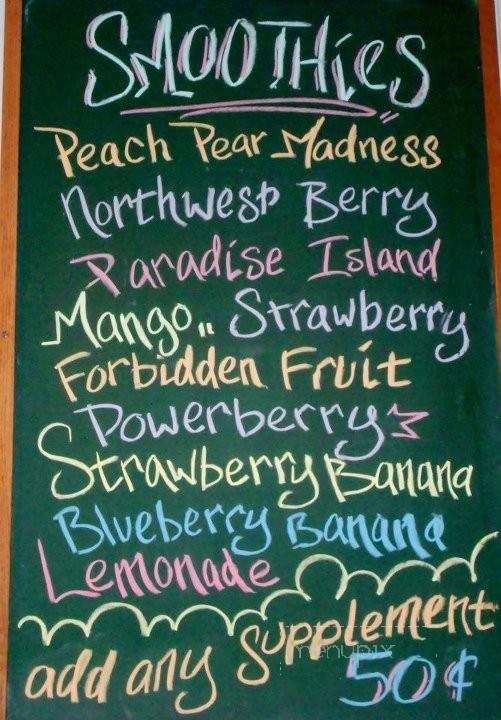 SMOOTHiES
Peach Pear Madness
Northwest Berry
Paradise Island
Mango,, Strawberry
Forbidden Fruit
Powerberry
Strawberry Banana
Blueberry Banana
Lemonade
add any Supplement
menupix
50¢